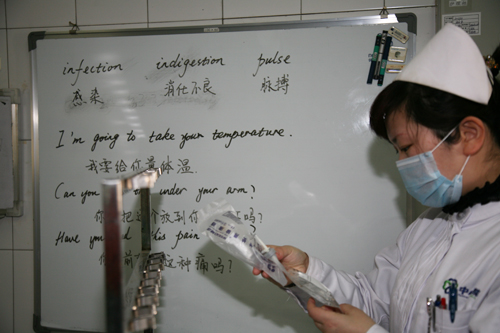 infection indigestion pulse
感染 消化不良 脉搏
I'm going to take your temperature.
我要给你量体温.
Can you under your arm?
你把这个放到你吗?
Have you this pain
你前这种痛吗?